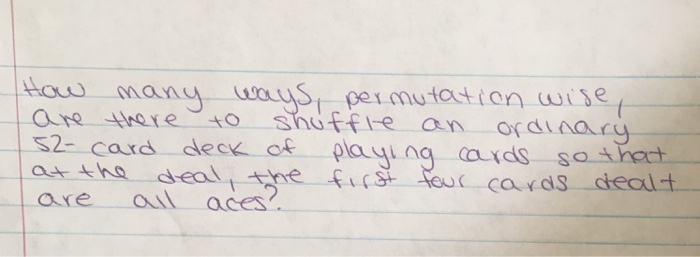 How many ways, permutation wise,
are there to shuffle an ordinary
52-card deck of playing cards so that
at the deal, the first four cards dealt
are all aces?